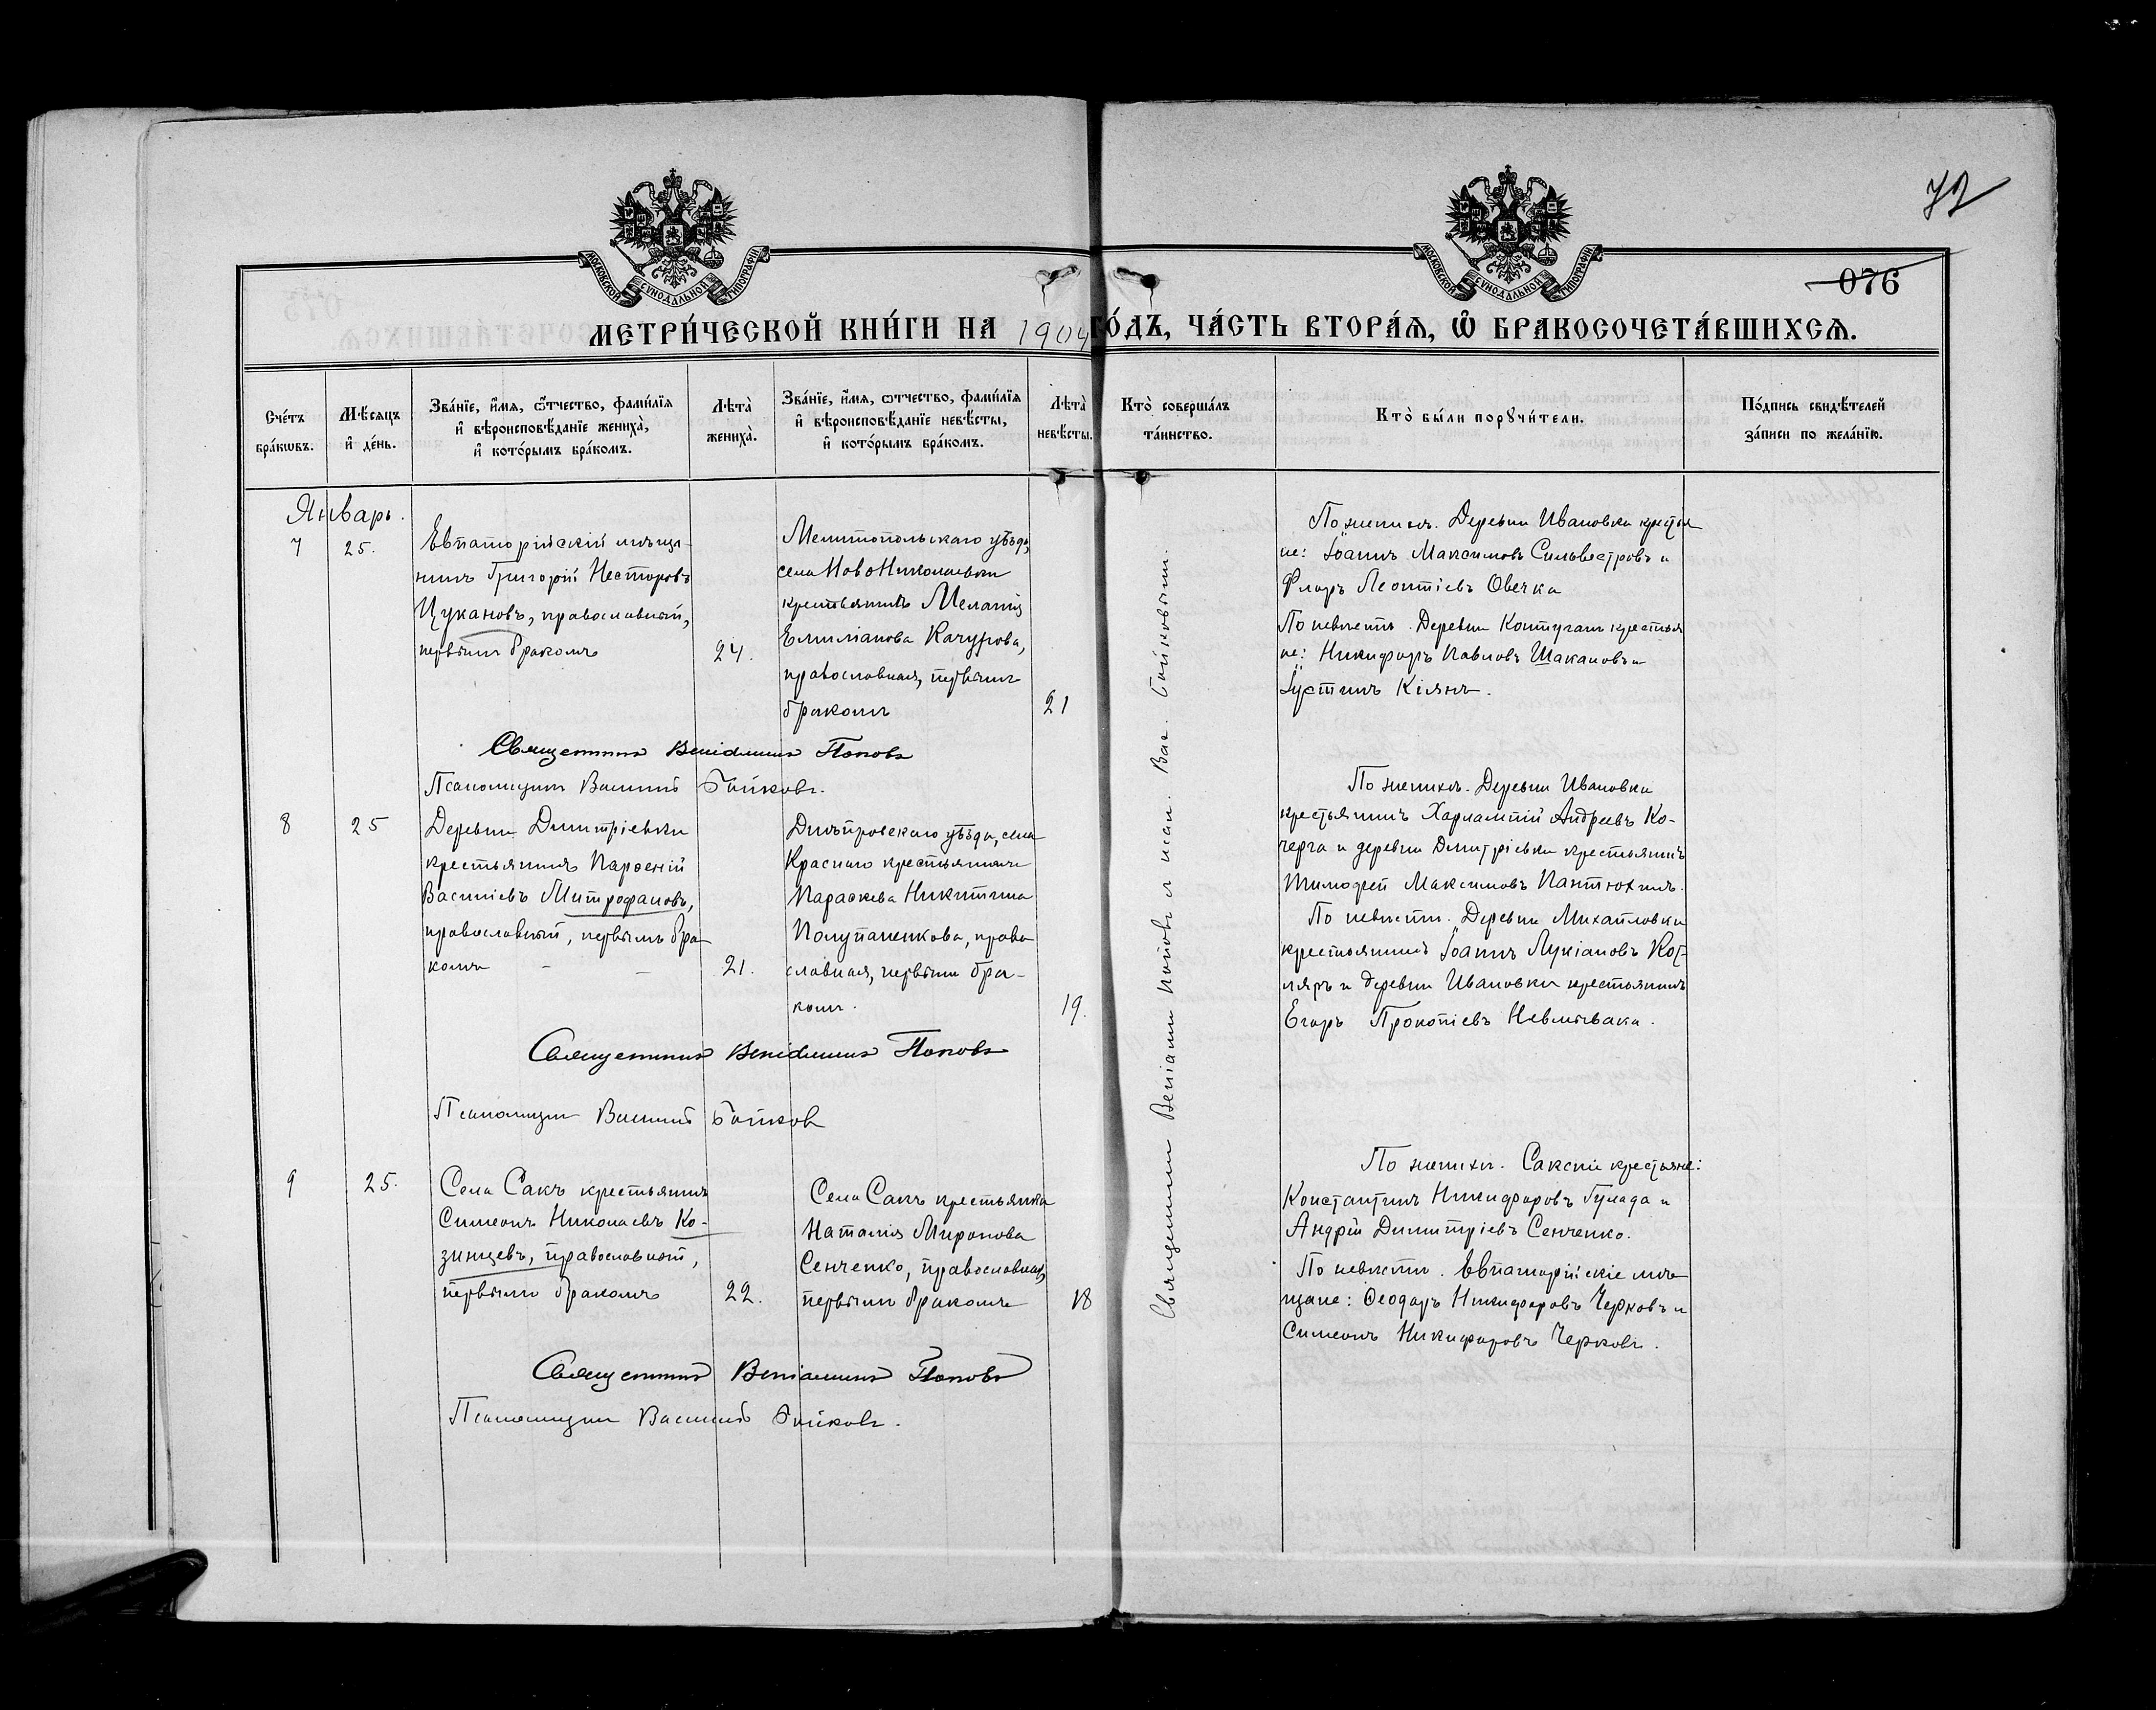 72
076
МОСКОВСКОЙ СѴНОДАЛЬНОЙ ТИПОГРАФІИ
МОСКОВСКОЙ СѴНОДАЛЬНОЙ ТИПОГРАФІИ
МЕТРИ́ЧЕСКОЙ КНИ́ГИ НА 1904 ГО́ДЪ, ЧА́СТЬ ВТОРА́Я, Ѽ БРАКОСОЧЕТА́ВШИХСЯ.
Сче́тъ бра́кѡвъ.
Мѣ́сяцъ и҆ де́нь.
Зва́нїе, и҆́мя, ѻ҆́тчество, фами́лїя
и҆ вѣроисповѣ́данїе жениха̀,
и҆ кото́рымъ бра́комъ.
Лѣта̀ жениха̀.
Зва́нїе, и҆́мя, ѻ҆́тчество, фами́лїя
и҆ вѣроисповѣ́данїе невѣ́сты,
и҆ кото́рымъ бра́комъ.
Лѣта̀ невѣ́сты.
Кто̀ соверша́лъ
та́инство.
Кто̀ бы́ли порꙋчи́тели.
По́дпись свидѣ́телей
за́писи по жела́нїю.
Январь.
7
25.
Евпаторійскій мѣща-
нинъ Григорій Несторовъ
Цукановъ, православный,
первымъ бракомъ
24.
Мелитопольскаго уѣзда,
села Ново Николаевки
крестьянка Меланія
Емиліанова Качурова,
православная, первымъ
бракомъ
21
По женихѣ. Деревни Ивановки крестья
не: Іоаннъ Максимовъ Сильвестровъ и
Флоръ Леонтіевъ Овечка
По невѣстѣ. Деревни Контуганъ крестья
не: Никифоръ Павловъ Шакановъ и
Іустинъ Кіянъ.
Священникъ Веніаминъ Поповъ
Псаломщикъ Василій Бойковъ.
8
25
Деревни Димитріевки
крестьянинъ Парѳеній
Василіевъ Митрофановъ,
православный, первымъ бра-
комъ - -
21.
Днѣпровскаго уѣзда, села
Краснаго крестьянка
Параскева Никитина
Полупаненкова, право
славная, первымъ бра-
комъ.
19.
По женихѣ. Деревни Ивановки
крестьянинъ Харлампій Андреевъ Ко-
черга и деревни Димитріевки крестьянинъ
Тимофей Максимовъ Пантюхинъ.
По невѣстѣ. Деревни Михайловки
крестьянинъ Іоаннъ Лукіановъ Кот-
ляръ и деревни Ивановки крестьянинъ
Егоръ Прокопіевъ Невмывака.
Священникъ Веніаминъ Поповъ
Псаломщикъ Василій Бойковъ
9
25.
Села Сакъ крестьянинъ
Симеонъ Николаевъ Ко-
зинцевъ, православный,
первымъ бракомъ
22.
Села Сакъ крестьянка
Наталія Миронова
Сенченко, православная,
первымъ бракомъ
18
По женихѣ. Сакскіе крестьяне:
Константинъ Никифоровъ Гулада и
Андрей Димитріевъ Сенченко.
По невѣстѣ. Евпаторійскіе мѣ-
щане: Ѳеодоръ Никифоровъ Черковъ и
Симеонъ Никифоровъ Черковъ.
Священникъ Веніаминъ Поповъ
Псаломщикъ Василій Бойковъ.
Священникъ Веніаминъ Поповъ и псал. Вас. Бойковымъ.